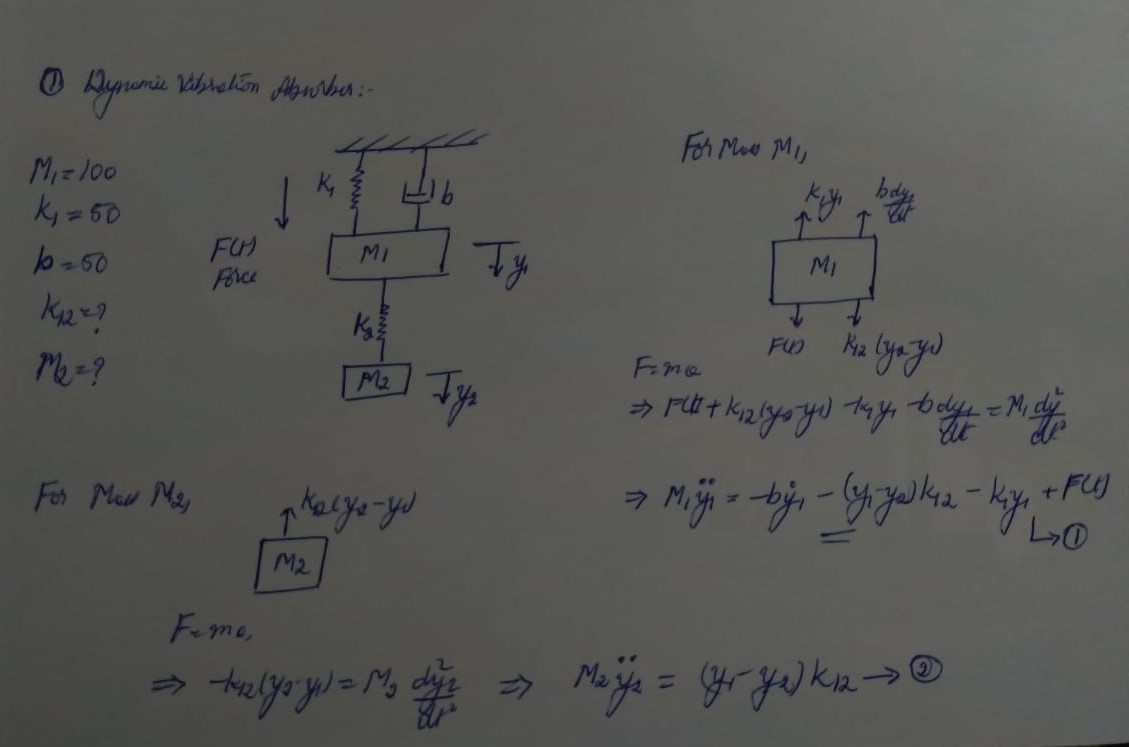 ① Dynamic Vibration Absorber:-
M₁=100
k₁=50
b=50
k₁₂=?
M₂=?
F(t)
Force
K₁
b
M₁
y₁
K₂
M₂
y₂
For Mass M₁,
k₁y₁
b dy₁/dt
M₁
F(t)
k₁₂(y₂-y₁)
F=ma
⇒ F(t)+k₁₂(y₂-y₁) -k₁y₁ -b dy₁/dt = M₁ dy²/dt²
⇒ M₁ÿ₁ = -bẏ₁ -(y₁-y₂)k₁₂ - k₁y₁ + F(t)
↳①
For Mass M₂,
k₁₂(y₂-y₁)
M₂
F=ma,
⇒ -k₁₂(y₂-y₁) = M₂ dy₂²/dt² ⇒ M₂ÿ₂ = (y₁-y₂)k₁₂ → ②